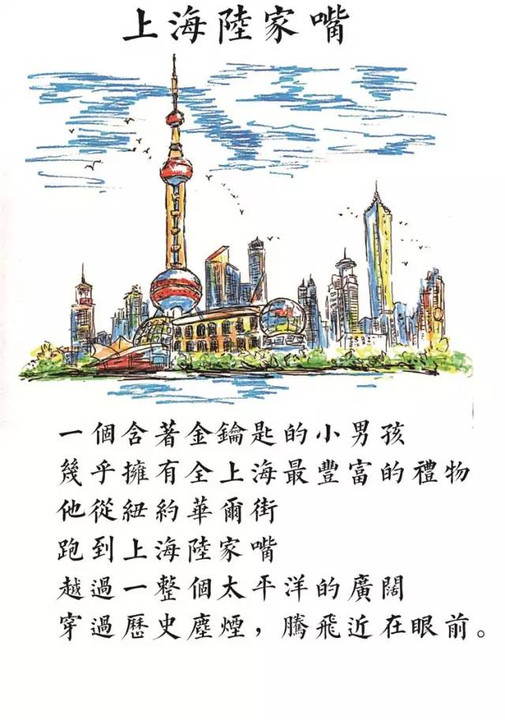 上海陸家嘴
一個含著金鑰匙的小男孩
幾乎擁有全上海最豐富的禮物
他從紐約華爾街
跑到上海陸家嘴
越過一整個太平洋的廣闊
穿過歷史塵煙，騰飛近在眼前。